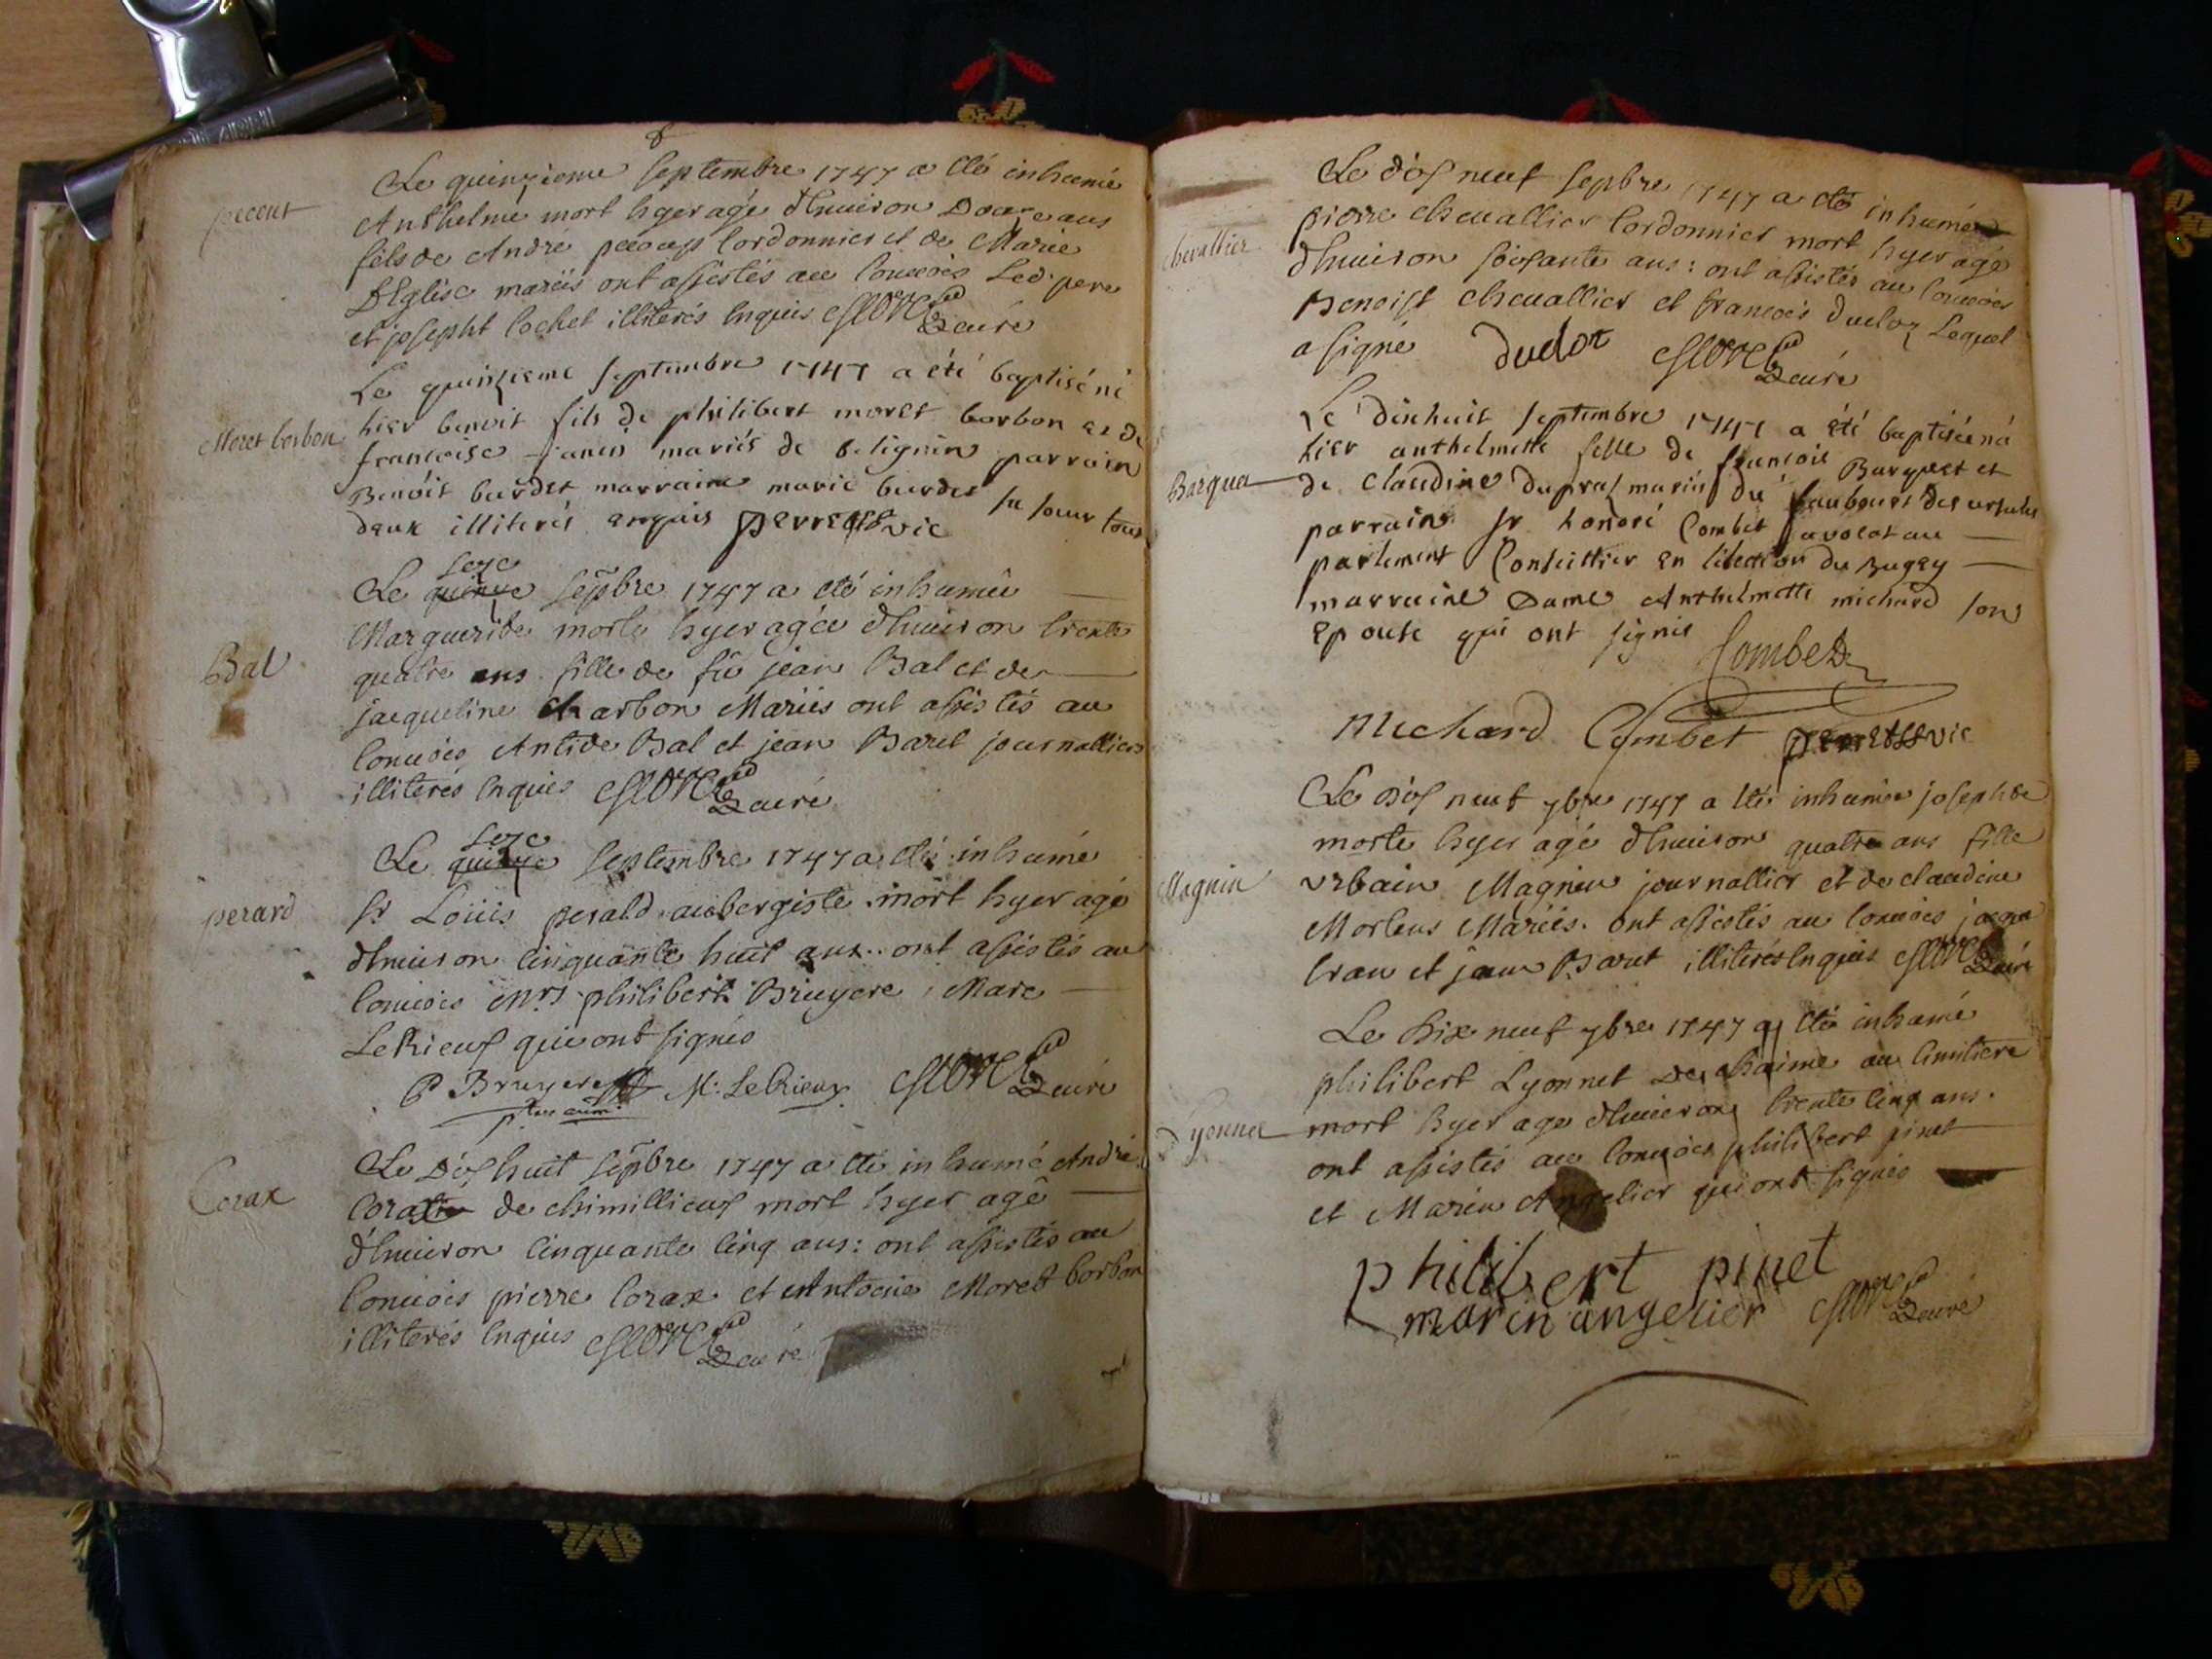 Le quinzieme septembre 1747 a eté inhumé
Anthelme mort hyer agé d'enuiron Douze ans
fils de André pecous Cordonnier et de Marie
DEglise mariés ont assistés au Conuois Led. pere
et josepht Cochet illiterés Enquis
curé
Le quinzieme septembre 1747 a été baptisé né
Moret borbon
hier benoit fils de philibert moret borbon et de
francoise janin mariés de belignin parrain
Benoit burdet marraine marie burdet sa soeur tous
deux illiterés enquis perret vic
seze
Le quinze sepbre 1747 a eté inhumée
Marguerite morte hyer agée d'enuiron trente
Bal
quatre ans fille de fû jean Bal et de
jacqueline Charbon Mariés ont assistés au
Conuois Antide Bal et jean Baret journalliers
illiterés Enquis
curé
seze
Le quinze septembre 1747 a eté inhumé
perard
sr Loüis perald aubergiste mort hyer agé
d'enuiron Cinquante huit ans. ont assistés au
Conuois philibert Bruyere, Marc
LeRieux qui ont signés
P Bruyere M. LeRieux curé
Le Dix huit sepbre 1747 a eté inhumé André
Corax
de chimillieux mort hyer agé
d'enuiron Cinquante Cinq ans: ont assistés au
Conuois pierre Corax et Antoine Moret borbon
illiterés Enquis
curé
Le dix neuf sepbre 1747 a eté inhumé
chevallier
pierre cheuallier Cordonnier mort hyer agé
d'enuiron soixante ans: ont assistés au Conuois
Benoist cheuallier et francois Ducloz Lequel
a signé
curé
Le dixhuit septembre 1747 a été baptisée née
hier anthelmette fille de francois Barquet et
de Claudine Dupraz mariés du faubourt des ursules
parrain sr honoré Combet avocat au
parlement Conseillier en lelection du Bugey
marraine Dame Anthelmette michard son
Epouse qui ont signés
Combet
Michard Combet perret vic
Le Dix neuf 7bre 1747 a eté inhumée josephte
morte hyer agé d'enuiron quatre ans fille
Magnin
vrbain Magnin journallier et de claudine
Mortens Mariés. ont assistés au Conuois
et jean Baret illiterés Enquis curé
Le Dix neuf 7bre 1747 a eté inhumé
philibert Lyonnet au Cimitiere
Lyonnet
mort hyer age d'enuiron trente Cinq ans.
ont assistés au Conuois philibert pinet
et Marin Angelier qui ont signés
philibert pinet
marin angelier
curé